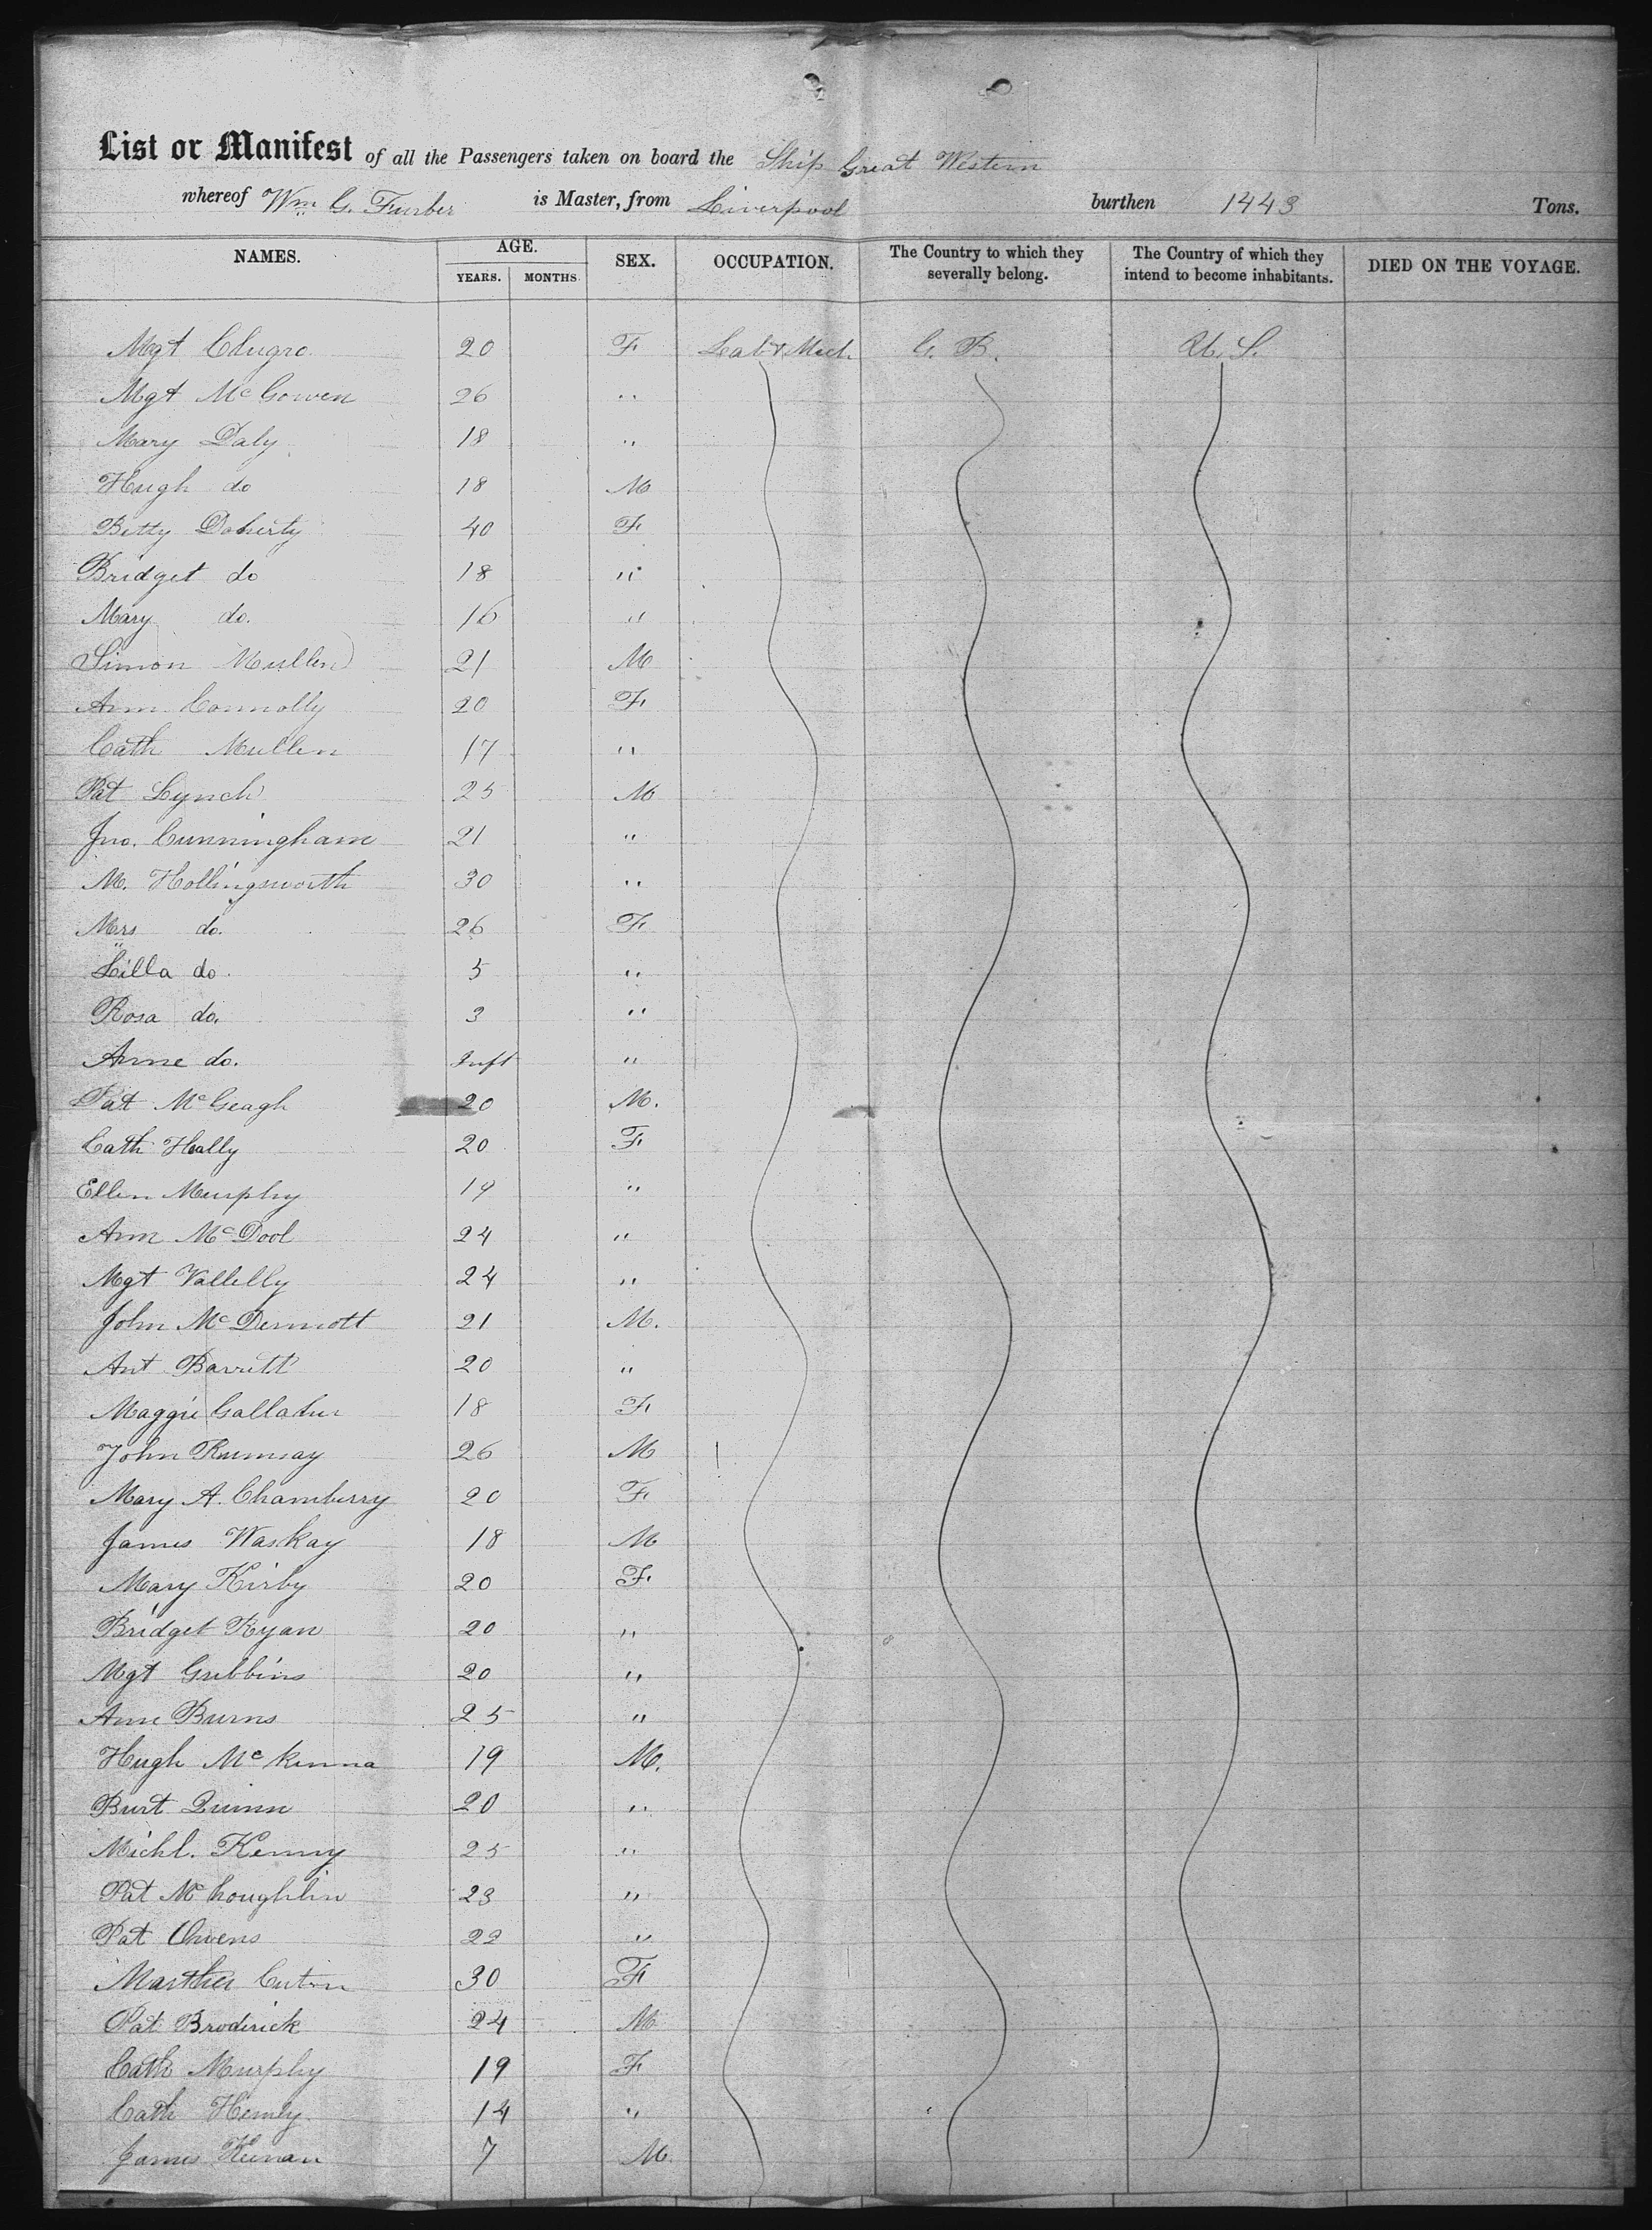 List or Manifest of all the Passengers taken on board the Ship Great Western
whereof Wm G. Furber is Master, from Liverpool burthen 1443 Tons.
NAMES. AGE. YEARS. MONTHS SEX. OCCUPATION. The Country to which they severally belong. The Country of which they intend to become inhabitants. DIED ON THE VOYAGE.
Mgt 20 F Lab & Mech. G. B. U. S.
Mgt McGowen 26 "
Mary Daly 18 "
Hugh do 18 M
Betty Doherty 40 F
Bridget do 18 "
Mary do. 16 "
Simon Mullen 21 M
Ann Connolly 20 F
Cath Mullen 17 "
Pat Lynch 25 M
Jno. Cunningham 21 "
M. Hollingsworth 30 "
Mrs do. 26 F
Lilla do. 5 "
Rosa do. 3 "
Anne do. Inft "
Pat McGeagh 20 M.
Cath Heally 20 F
Ellen Murphy 19 "
Ann McDool 24 "
Mgt Vallelly 24 "
John McDermott 21 M.
Ant Barrett 20 "
Maggie Gallaher 18 F
John Rumsay 26 M
Mary A. Chamberry 20 F
James Waskay 18 M
Mary Kirby 20 F
Bridget Ryan 20 "
Mgt Gribbins 20 "
Anne Burns 25 "
Hugh McKenna 19 M.
Burt Quinn 20 "
Michl. Kenny 25 "
Pat McLoughlin 23 "
Pat Owens 22 "
Marther 30 F
Pat Broderick 24 M
Cath Murphy 19 F
Cath 14 "
James Keenan 7 M.